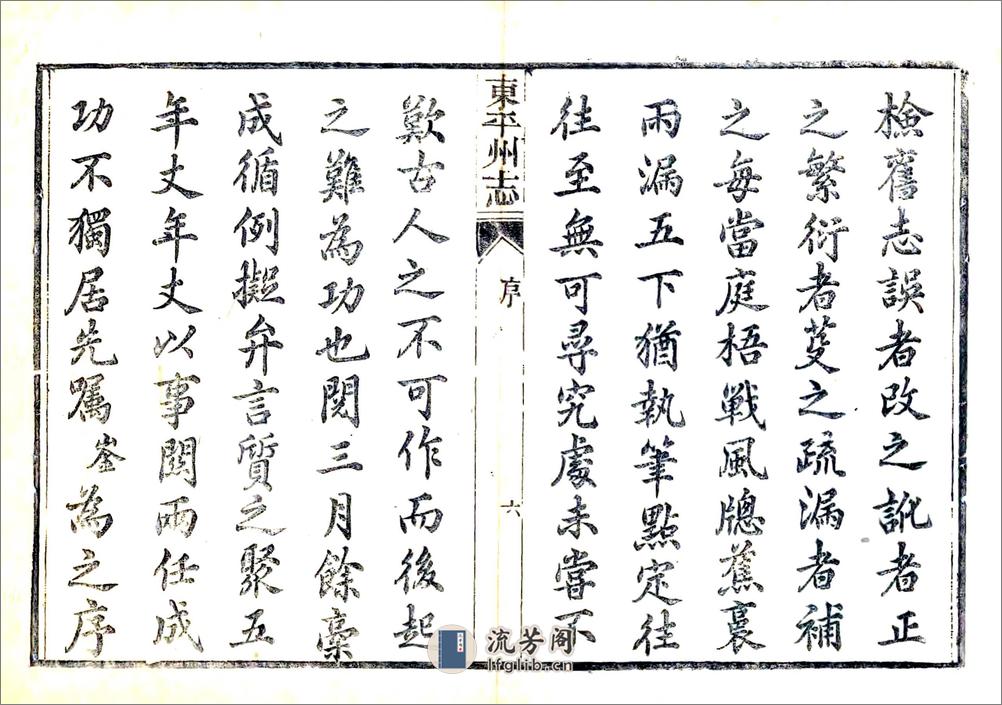 檢舊志誤者改之訛者正
之繁衍者芟之疏漏者補
之每當庭梧戰風牕蕉裏
雨漏五下猶執筆點定往
往至無可尋究處未嘗不
東平州志
序
六
歎古人之不可作而後起
之難為功也閱三月餘稾
成循例擬弁言質之聚五
年丈年丈以事關兩任成
功不獨居先囑崟為之序
流芳阁
lfglib.cn